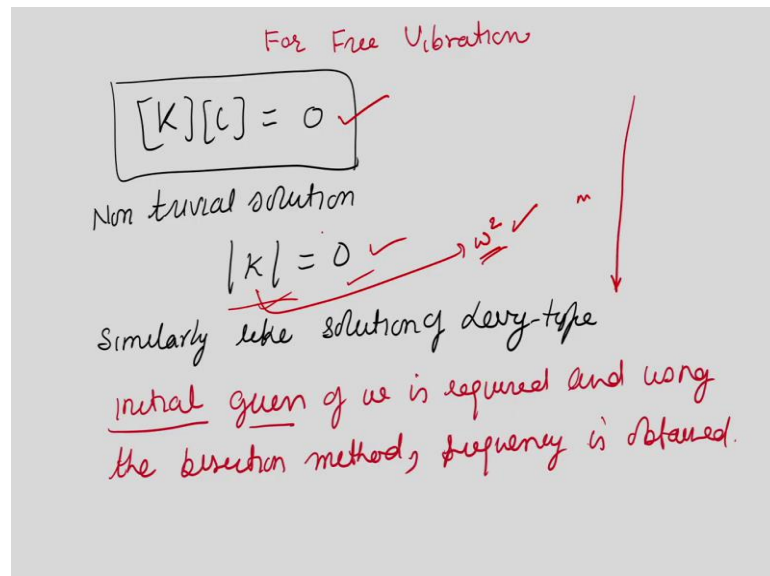 For Free Vibration
[K][C] = 0 ✓
Non trivial solution
|K| = 0 ✓ ω² ✓
Similarly like solution of Levy-type
initial guess of ω is required and using
the bisection method, frequency is obtained.